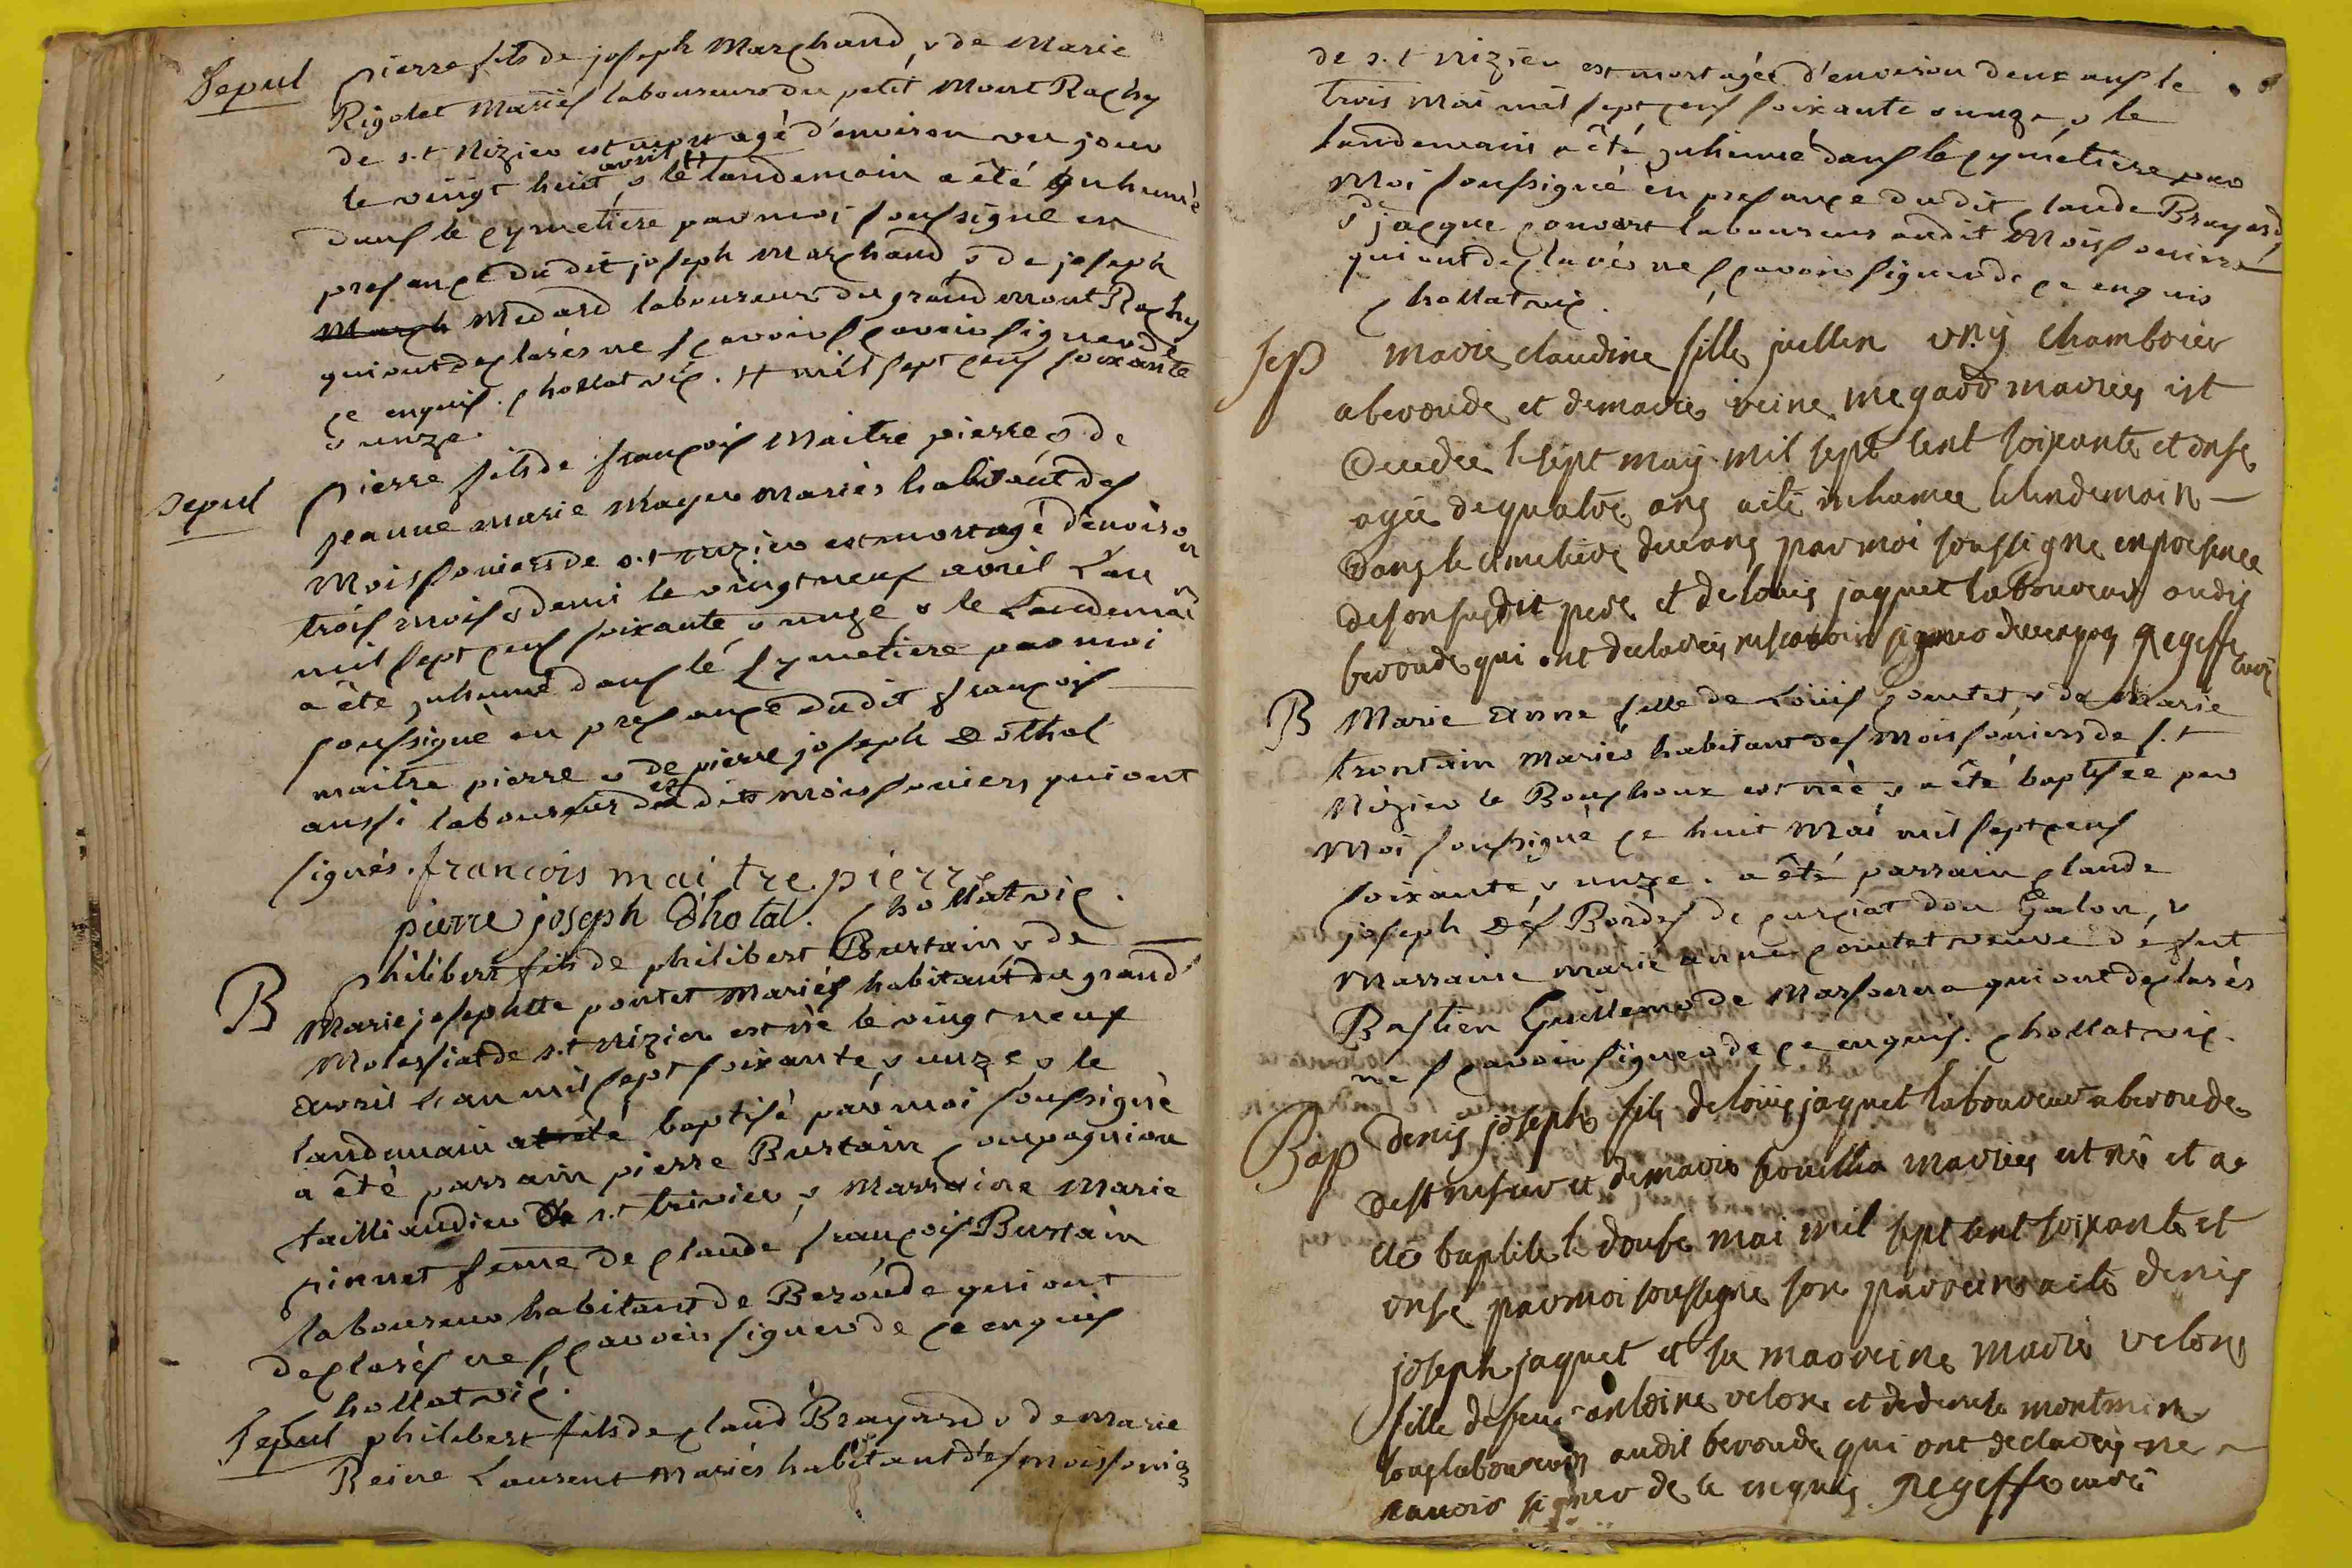 Sepul
pierre fils de joseph Marchand, & de Marie
Rigolet Mariés laboureurs du petit Mont Rachy
de s.t Nizier est mort agé d'environ un jour
le vingt huit avril & le landemain a êté inhumé
dans le cymetiere par moi soussigné en
presance du dit joseph Marchand & de joseph
March Medard laboureur du grand mont Rachy
qui ont declarés ne scavoir scavoir signer de
ce enquis. chollat vic. # mil sept cens soixante
& unze.
Sepul
pierre fils de françois Maitre pierre & de
jeanne marie Mayer Mariés habitant des
Moissoniers de s.t nizier est mort agé d'environ
trois mois & demi le vingt neuf avril L'an
mil sept cens soixante & unze & le Landemain
a êté inhumé dans le cymetiere par moi
soussigné en presance dudit françois
maitre pierre & de pierre joseph Dothal
aussi laboureurs des dits moissoniers qui ont
signés. francois mai tre pierre
pierre joseph Dhotal. chollat vic.
B
Philibert fils de philibert Burtain & de
Marie josephtte pontet Mariés habitant du grand
Molessiat de s.t nizier est né le vingt neuf
avril L'an mil sept soixante & unze & le
landemain a été baptisé par moi soussigné
a êté parrain pierre Burtain compagnion
tailliandier de s.t trivier & Marraine Marie
pinnet femme de claude françois Burtain
laboureur habitant de Beroude qui ont
declarés ne scavoir signer de ce enquis
chollat vic.
Sepul philibert fils de claud Brayard & de Marie
Reine Laurent Mariés habitant des moissoniers
de s.t nizier est mort agée d'environ deux ans le
trois Mai mil sept cens soixante & unze & le
landemain a êté inhumé dans le cymetiere par
Moi soussigné en presance dudit claude Brayard
& de jacque convert laboureurs audit Moissonier
qui ont declarés ne scavoir signer de ce enquis
chollat vic.
sep
marie claudine fille juillen
a beroude et de marie reine megard mariés est
decedée le sept may mil sept cent soixante et onse
agée de quatre ans a été inhumee le lendemain
dans le cimetiere ceans par moi soussigne en presence
de son susdit pere et de louis jaquet laboureurs audis
beroude qui ont declarés ne scavoir signer de ce enquis Regeffe curé
B
Marie Anne fille de Loüis pontet & de Marie
trontain Mariés habitant des Moissoniers de s.t
Nizier le Bouchoux est née & a êté baptisée par
Moi soussigné ce huit Mai mil sept cens
soixante & unze. a êté parrain claude
joseph Des Bordes de curciat don Galon, &
Marraine marie anne pontet veuve défunt
Bastien Guillemo de Marsonna qui ont declarés
ne scavoir signer de ce enquis. chollat vic.
Bap
denis joseph fils de loüis jaquet laboureur a beroude
de st nisier et de marie mariés est né et a
été baptisé le douse mai mil sept cent soixante et
onse par moi soussigné son parrein a eté denis
joseph jaquet et sa marreine marie velon
fille de feu antoine velon et de montmin
tous laboureurs audit beroude qui ont declarés ne
scavoir signer de ce enquis Regeffe curé